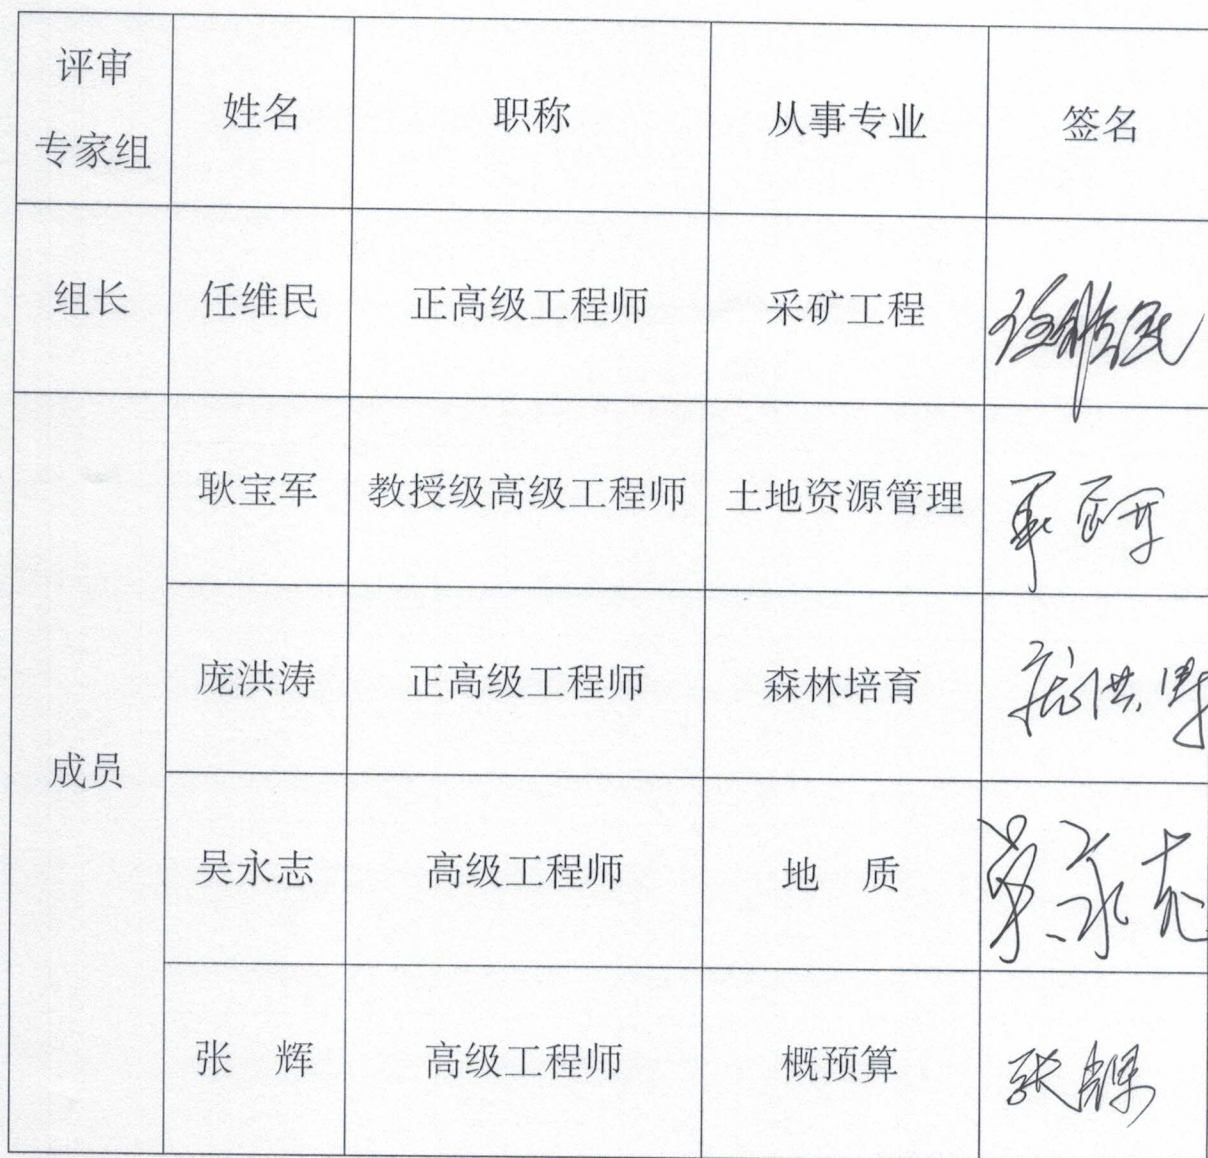 评审
专家组
姓名 职称 从事专业 签名
组长 任维民 正高级工程师 采矿工程 任维民
成员
耿宝军 教授级高级工程师 土地资源管理
庞洪涛 正高级工程师 森林培育 庞洪涛
吴永志 高级工程师 地 质 吴永志
张 辉 高级工程师 概预算 张辉